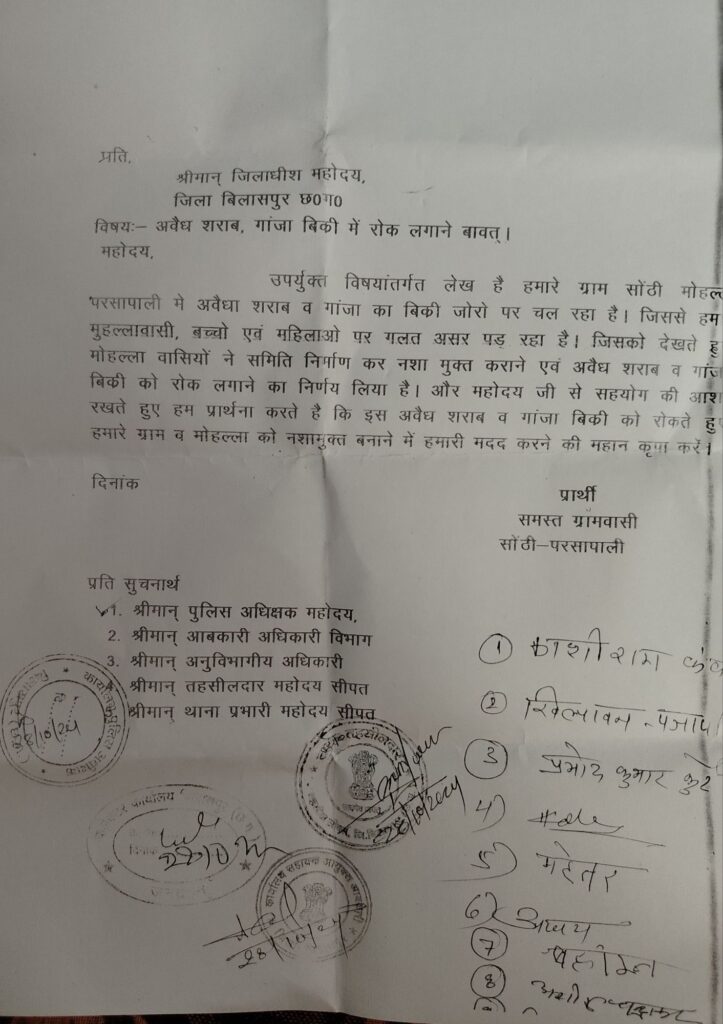 प्रति,
श्रीमान् जिलाधीश महोदय,
जिला बिलासपुर छ0ग0
विषयः– अवैध शराब, गांजा बिकी में रोक लगाने बावत्।
महोदय,
उपर्युक्त विषयांतर्गत लेख है हमारे ग्राम सोंठी मोहल्
परसापाली मे अवैधा शराब व गांजा का बिकी जोरो पर चल रहा है। जिससे हम
मुहल्लावासी, बच्चो एवं महिलाओ पर गलत असर पड़ रहा है। जिसको देखते हु
मोहल्ला वासियों ने समिति निर्माण कर नशा मुक्त कराने एवं अवैध शराब व गांज
बिकी को रोक लगाने का निर्णय लिया है। और महोदय जी से सहयोग की आश
रखते हुए हम प्रार्थना करते है कि इस अवैध शराब व गांजा बिकी को रोकते हु
हमारे ग्राम व मोहल्ला को नशामुक्त बनाने में हमारी मदद करने की महान कृपा करें।
दिनांक
प्रार्थी
समस्त ग्रामवासी
सोंठी–परसापाली
प्रति सुचनार्थ
1. श्रीमान् पुलिस अधिक्षक महोदय,
2. श्रीमान् आबकारी अधिकारी विभाग
3. श्रीमान् अनुविभागीय अधिकारी
श्रीमान् तहसीलदार महोदय सीपत
श्रीमान् थाना प्रभारी महोदय सीपत
1 काशीराम
2
3 प्रमोद कुमार कुर्रे
4)
5) महेतर
6) अभय
7
8
28/10/24
28/10/24
कार्यालय सहायक आयुक्त आबकारी
28/10/24